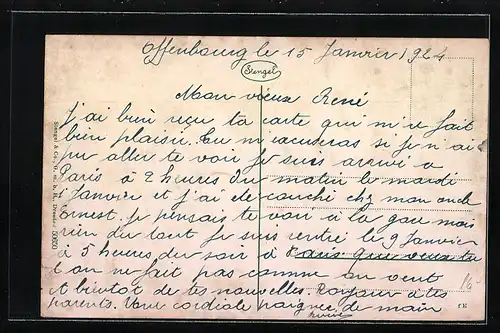 Offenbourg le 15 Janvier 1924
Stengel
Mon vieux René
J'ai bien reçu ta carte qui m'a fait
bien plaisir. Tu m'excuseras si je n'ai
pu aller te voir je suis arrivé a
Paris à 2 heures du matin le mardi
1 Janvier et j'ai été couché chez mon oncle
Ernest. Je pensais te voir à la gare mais
rien du tout Je suis rentré le 9 Janvier
à 5 heures du soir à
t on ne fait pas comme on veut
et bientôt de tes nouvelles. Bonjour à tes
parents. Une cordiale poignée de main
Stengel & Co., G. m. b. H., Dresden
16-